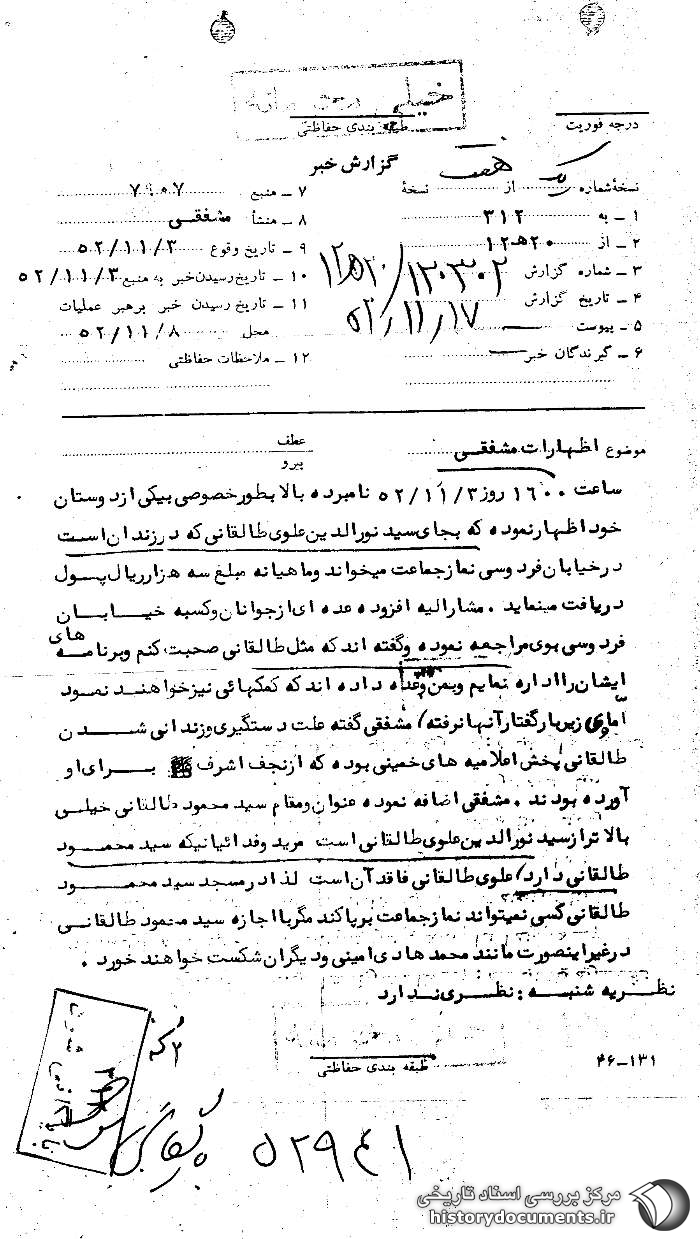 خیلی محرمانه
طبقه بندی حفاظتی
درجه فوریت
گزارش خبر
نسخهٔ شماره یک از هفت نسخهٔ
۱ - به ۳۱۲
۲ - از ۲۰هـ۱۲
۳ - شماره گزارش ۱۳۰۳۰۲/۲۰ه۱۲
۴ - تاریخ گزارش ۵۲/۱۱/۱۷
۵ - پیوست
۶ - گیرندگان خبر
۷ - منبع ۷۹۰۷
۸ - منشأ مشفقی
۹ - تاریخ وقوع ۵۲/۱۱/۳
۱۰ - تاریخ رسیدن خبر به منبع ۵۲/۱۱/۳
۱۱ - تاریخ رسیدن خبر برهبر عملیات
محل ۵۲/۱۱/۸
۱۲ - ملاحظات حفاظتی
موضوع اظهارات مشفقی
عطف
پیرو
ساعت ۱۶۰۰ روز ۵۲/۱۱/۳ نامبرده بالا بطور خصوصی بیکی از دوستان
خود اظهار نموده که بجای سید نورالدین علوی طالقانی که در زندان است
در خیابان فردوسی نماز جماعت میخواند و ماهیانه مبلغ سه هزار ریال پول
دریافت مینماید . مشارالیه افزوده عده ای از جوانان و کسبه خیابان
فردوسی بوی مراجعه نموده و گفته اند که مثل طالقانی صحبت کنم و برنامه های
ایشان را اداره نمایم و بمن وعده داده اند که کمکهائی نیز خواهند نمود
اما وی زیر بار گفتار آنها نرفته) مشفقی گفته علت دستگیری و زندانی شدن
طالقانی پخش اعلامیه های خمینی بوده که از نجف اشرف برای او
آورده بودند . مشفقی اضافه نموده عنوان و مقام سید محمود طالقانی خیلی
بالا تر از سید نورالدین علوی طالقانی است مرید و فدائیانیکه سید محمود
طالقانی دارد) علوی طالقانی فاقد آن است لذا در مسجد سید محمود
طالقانی کسی نمیتواند نماز جماعت برپا کند مگر با اجازه سید محمود طالقانی
در غیر اینصورت مانند محمد هادی امینی و دیگران شکست خواهند خورد .
نظریه شنبه : نظری ندارد
طبقه بندی حفاظتی
۴۶-۱۳۱
۵۲۹۴۱
مرکز بررسی اسناد تاریخی
historydocuments.ir